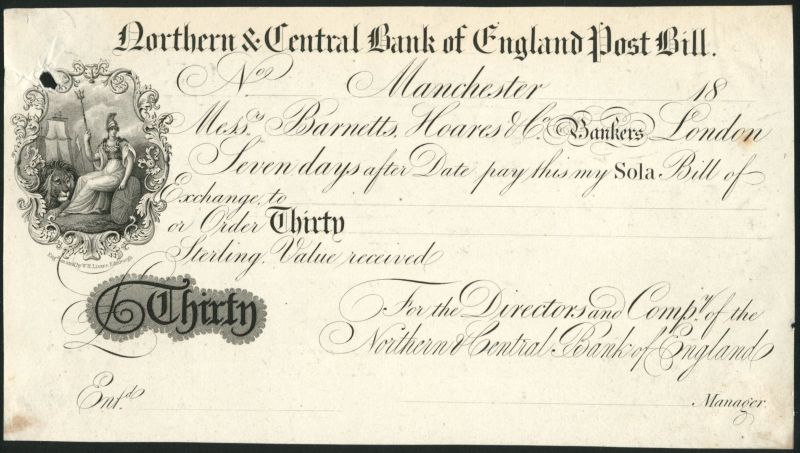 Northern & Central Bank of England Post Bill.
No. Manchester 18
Mess.rs Barnetts, Hoares & Co. Bankers London
Seven days after Date pay this my Sola Bill of
Exchange, to
or Order Thirty
Sterling, Value received
Engraved by W.H. Lizars, Edinburgh
£ Thirty
For the Directors and Comp.y of the
Northern & Central Bank of England
Ent.d Manager.